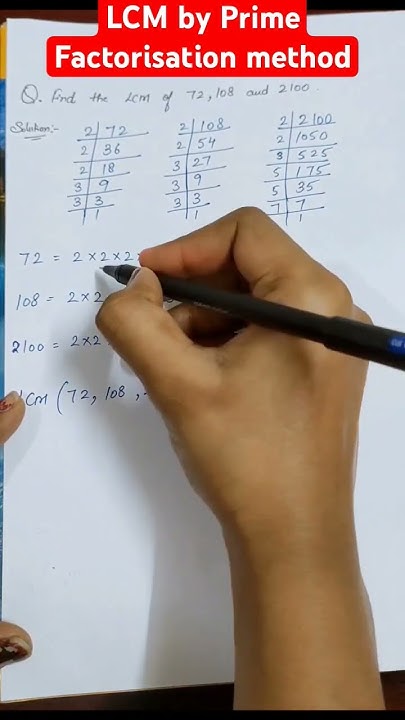 LCM by Prime
Factorisation method
Q. Find the LCM of 72, 108 and 2100.
Solution:-
2 | 72
2 | 36
2 | 18
3 | 9
3 | 3
1
2 | 108
2 | 54
3 | 27
3 | 9
3 | 3
1
2 | 2100
2 | 1050
3 | 525
5 | 175
5 | 35
7 | 7
1
72 = 2 × 2 × 2
108 = 2 × 2
2100 = 2 × 2
LCM (72, 108,